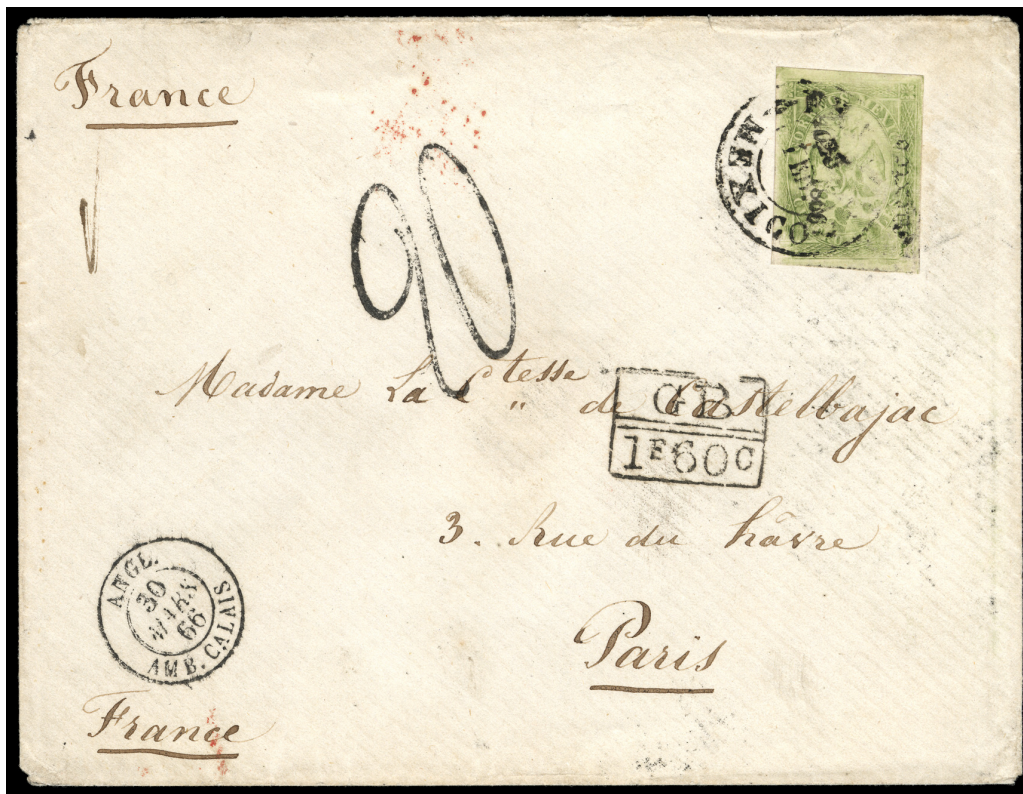 France
MEXICO
1866
20
Madame La Ctesse de Castelbajac
GB
1F60C
3. Rue du hâvre
ANGL.
30
MARS
66
AMB. CALAIS
Paris
France